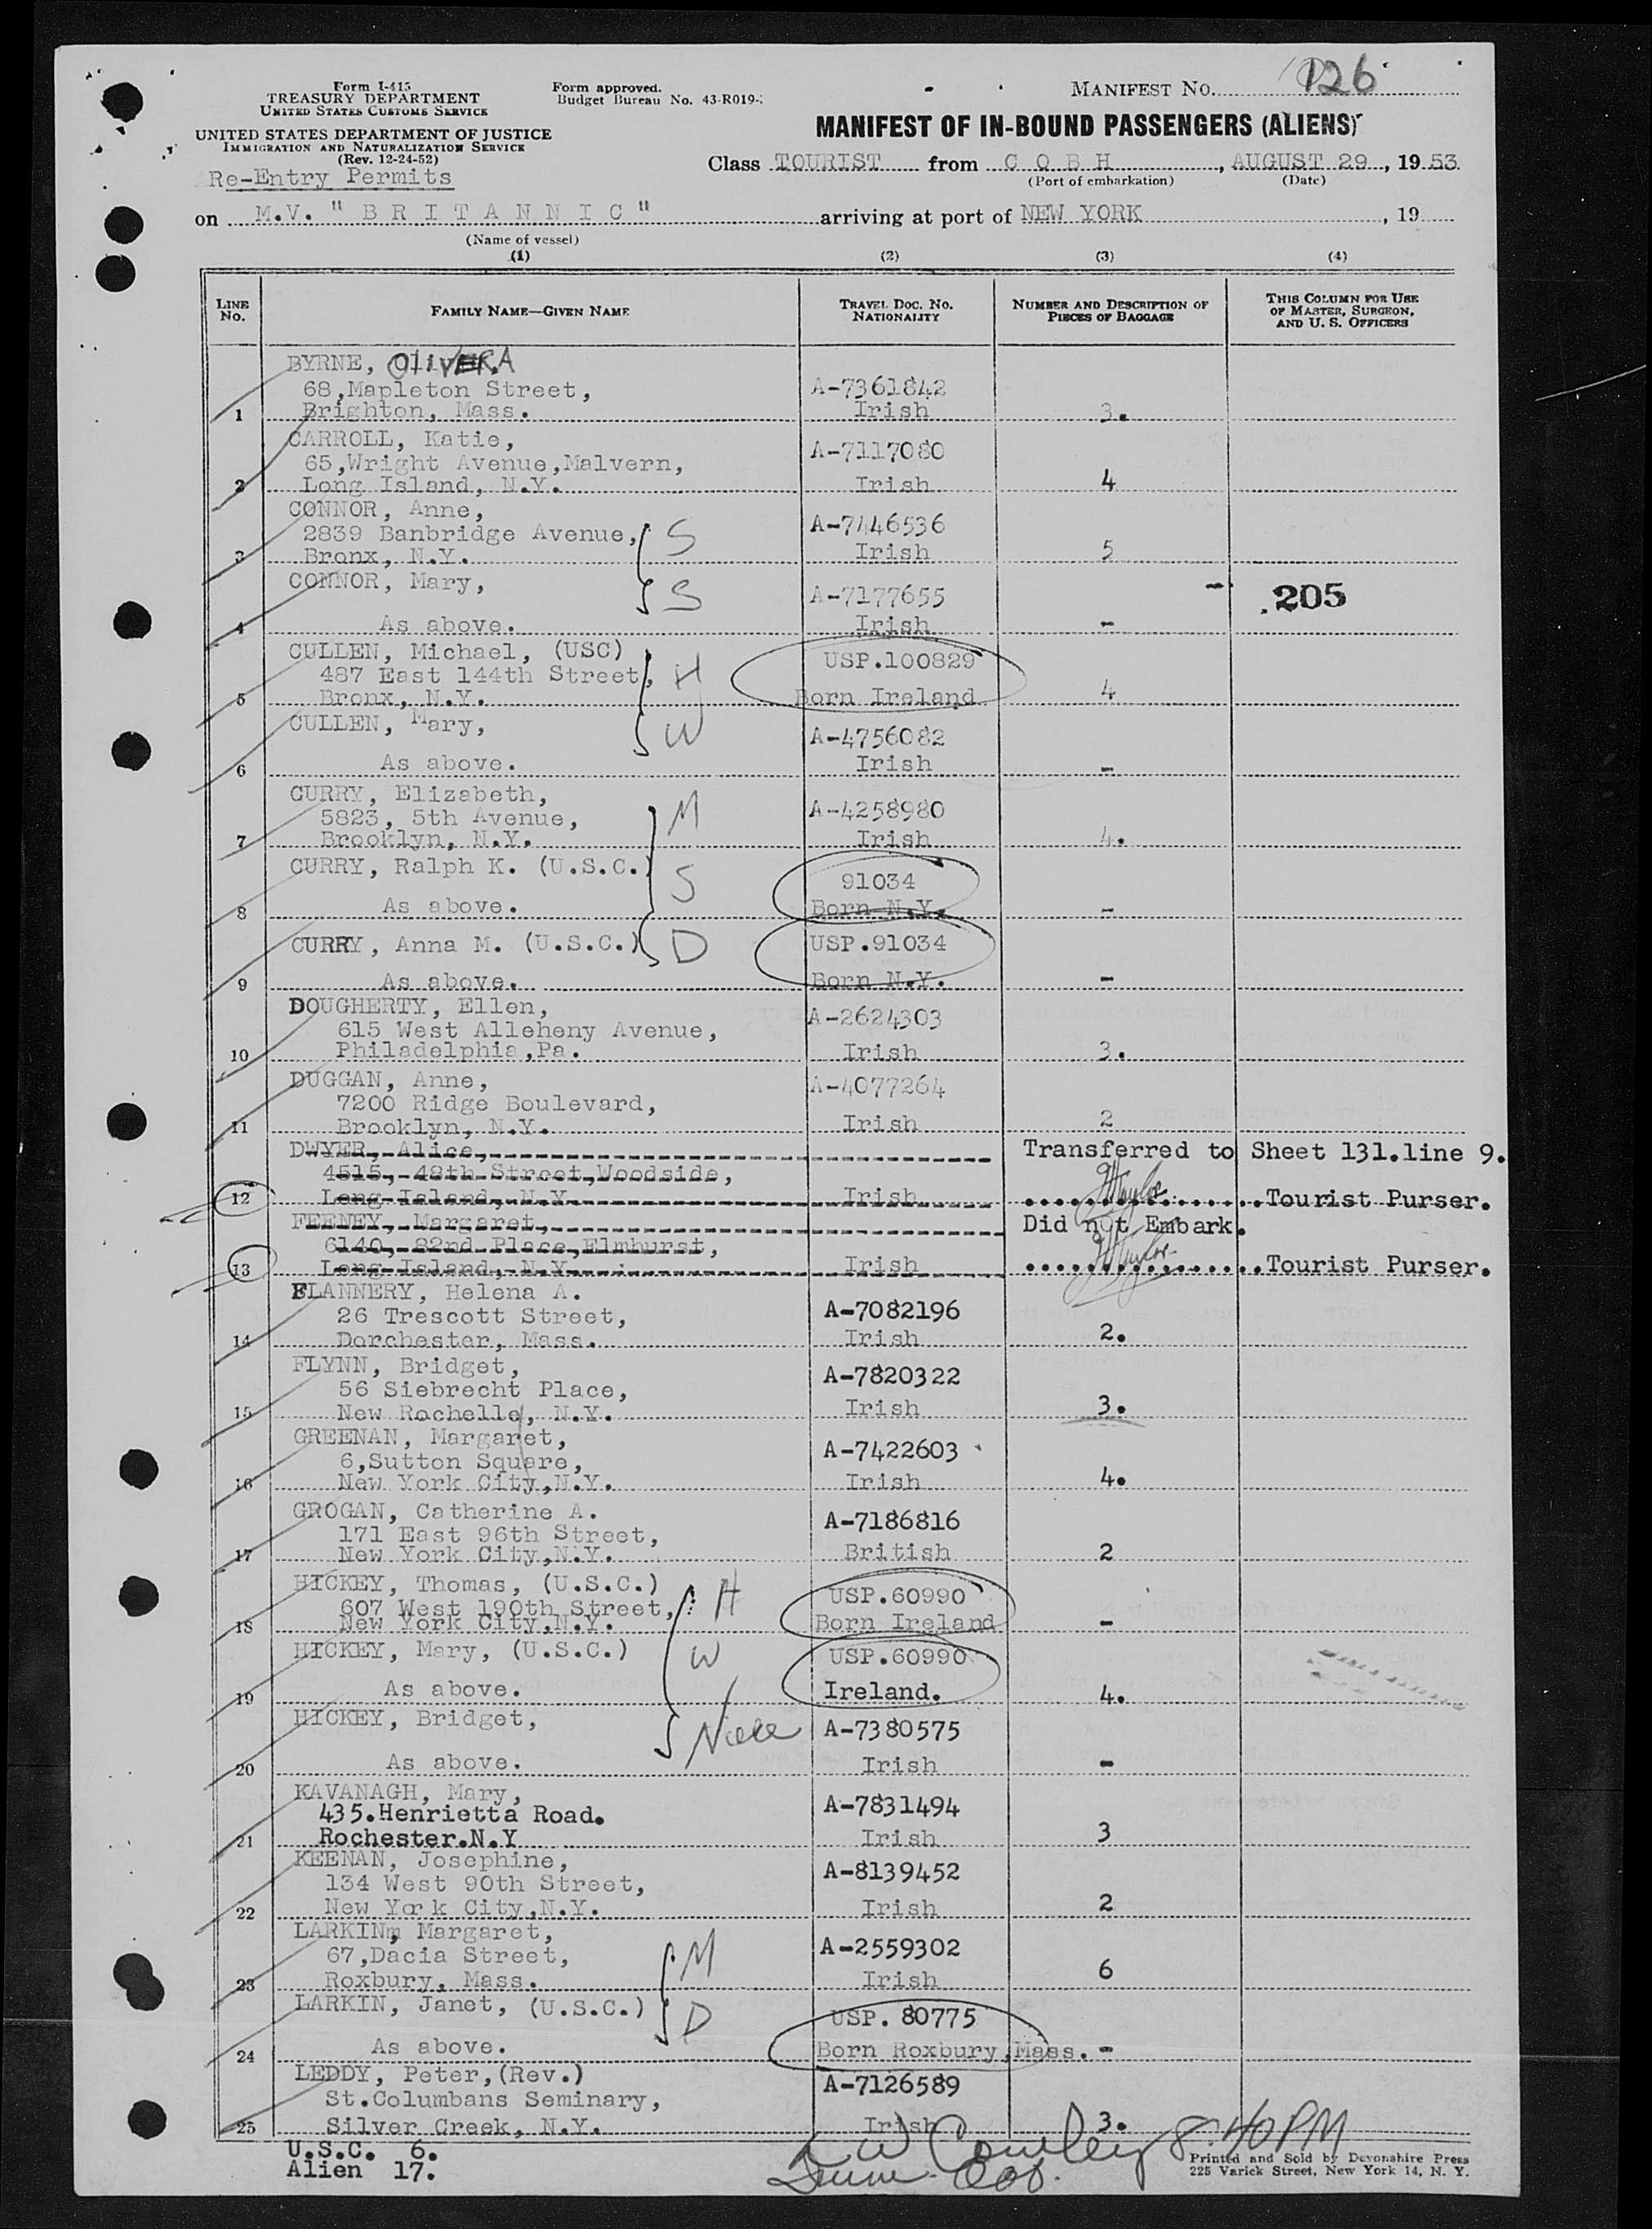 Form I-415
TREASURY DEPARTMENT
UNITED STATES CUSTOMS SERVICE
UNITED STATES DEPARTMENT OF JUSTICE
IMMIGRATION AND NATURALIZATION SERVICE
(Rev. 12-24-52)
Re-Entry Permits
Form approved.
Budget Bureau No. 43-R019-
MANIFEST NO. 126
MANIFEST OF IN-BOUND PASSENGERS (ALIENS)
Class TOURIST from C O B H, AUGUST 29, 19 53
(Port of embarkation) (Date)
on M.V. " B R I T A N N I C " arriving at port of NEW YORK, 19
(Name of vessel)
(1) (2) (3) (4)
LINE No. FAMILY NAME—GIVEN NAME TRAVEL DOC. NO. NATIONALITY NUMBER AND DESCRIPTION OF PIECES OF BAGGAGE THIS COLUMN FOR USE OF MASTER, SURGEON, AND U. S. OFFICERS
BYRNE, OLIVER A
68,Mapleton Street, A-7361842
1 Brighton, Mass. Irish 3.
CARROLL, Katie,
65,Wright Avenue,Malvern, A-7117080
2 Long Island, N.Y. Irish 4
CONNOR, Anne,
2839 Banbridge Avenue, S A-7446536
3 Bronx, N.Y. Irish 5
CONNOR, Mary, S A-7177655 - 205
4 As above. Irish -
CULLEN, Michael, (USC) USP.100829
487 East 144th Street, H
5 Bronx, N.Y. Born Ireland 4
CULLEN, Mary, W A-4756082
6 As above. Irish -
CURRY, Elizabeth,
5823, 5th Avenue, M A-4258980
7 Brooklyn, N.Y. Irish 4.
CURRY, Ralph K. (U.S.C.) S 91034
8 As above. Born N.Y. -
CURRY, Anna M. (U.S.C.) D USP.91034
9 As above. Born N.Y. -
DOUGHERTY, Ellen, A-2624303
615 West Alleheny Avenue,
10 Philadelphia,Pa. Irish 3.
DUGGAN, Anne, A-4077264
7200 Ridge Boulevard,
11 Brooklyn, N.Y. Irish 2
DWYER, Alice, Transferred to Sheet 131.line 9.
4515, 48th Street,Woodside,
12 Long Island, N.Y. Irish Tourist Purser.
FEENEY, Margaret, Did not Embark.
6140, 82nd Place,Elmhurst,
13 Long Island, N.Y. Irish Tourist Purser.
FLANNERY, Helena A.
26 Trescott Street, A-7082196
14 Dorchester, Mass. Irish 2.
FLYNN, Bridget,
56 Siebrecht Place, A-7820322
15 New Rochelle, N.Y. Irish 3.
GREENAN, Margaret,
6,Sutton Square, A-7422603
16 New York City,N.Y. Irish 4.
GROGAN, Catherine A.
171 East 96th Street, A-7186816
17 New York City,N.Y. British 2
HICKEY, Thomas, (U.S.C.) H USP.60990
607 West 190th Street,
18 New York City,N.Y. Born Ireland -
HICKEY, Mary, (U.S.C.) W USP.60990
19 As above. Ireland. 4.
HICKEY, Bridget, Niece A-7380575
20 As above. Irish -
KAVANAGH, Mary,
435.Henrietta Road. A-7831494
21 Rochester.N.Y Irish 3
KEENAN, Josephine,
134 West 90th Street, A-8139452
22 New York City,N.Y. Irish 2
LARKIN, Margaret,
67,Dacia Street, M A-2559302
23 Roxbury, Mass. Irish 6
LARKIN, Janet, (U.S.C.) D USP. 80775
24 As above. Born Roxbury,Mass. -
LEDDY, Peter,(Rev.) A-7126589
St.Columbans Seminary,
25 Silver Creek, N.Y. Irish 3.
U.S.C. 6.
Alien 17.
8:40 PM
Printed and Sold by Devonshire Press
225 Varick Street, New York 14, N. Y.